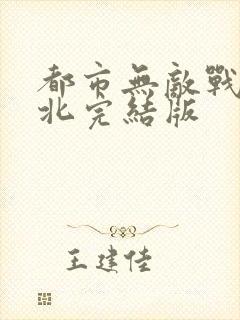 都市無敵戰
北完結版
王建佳